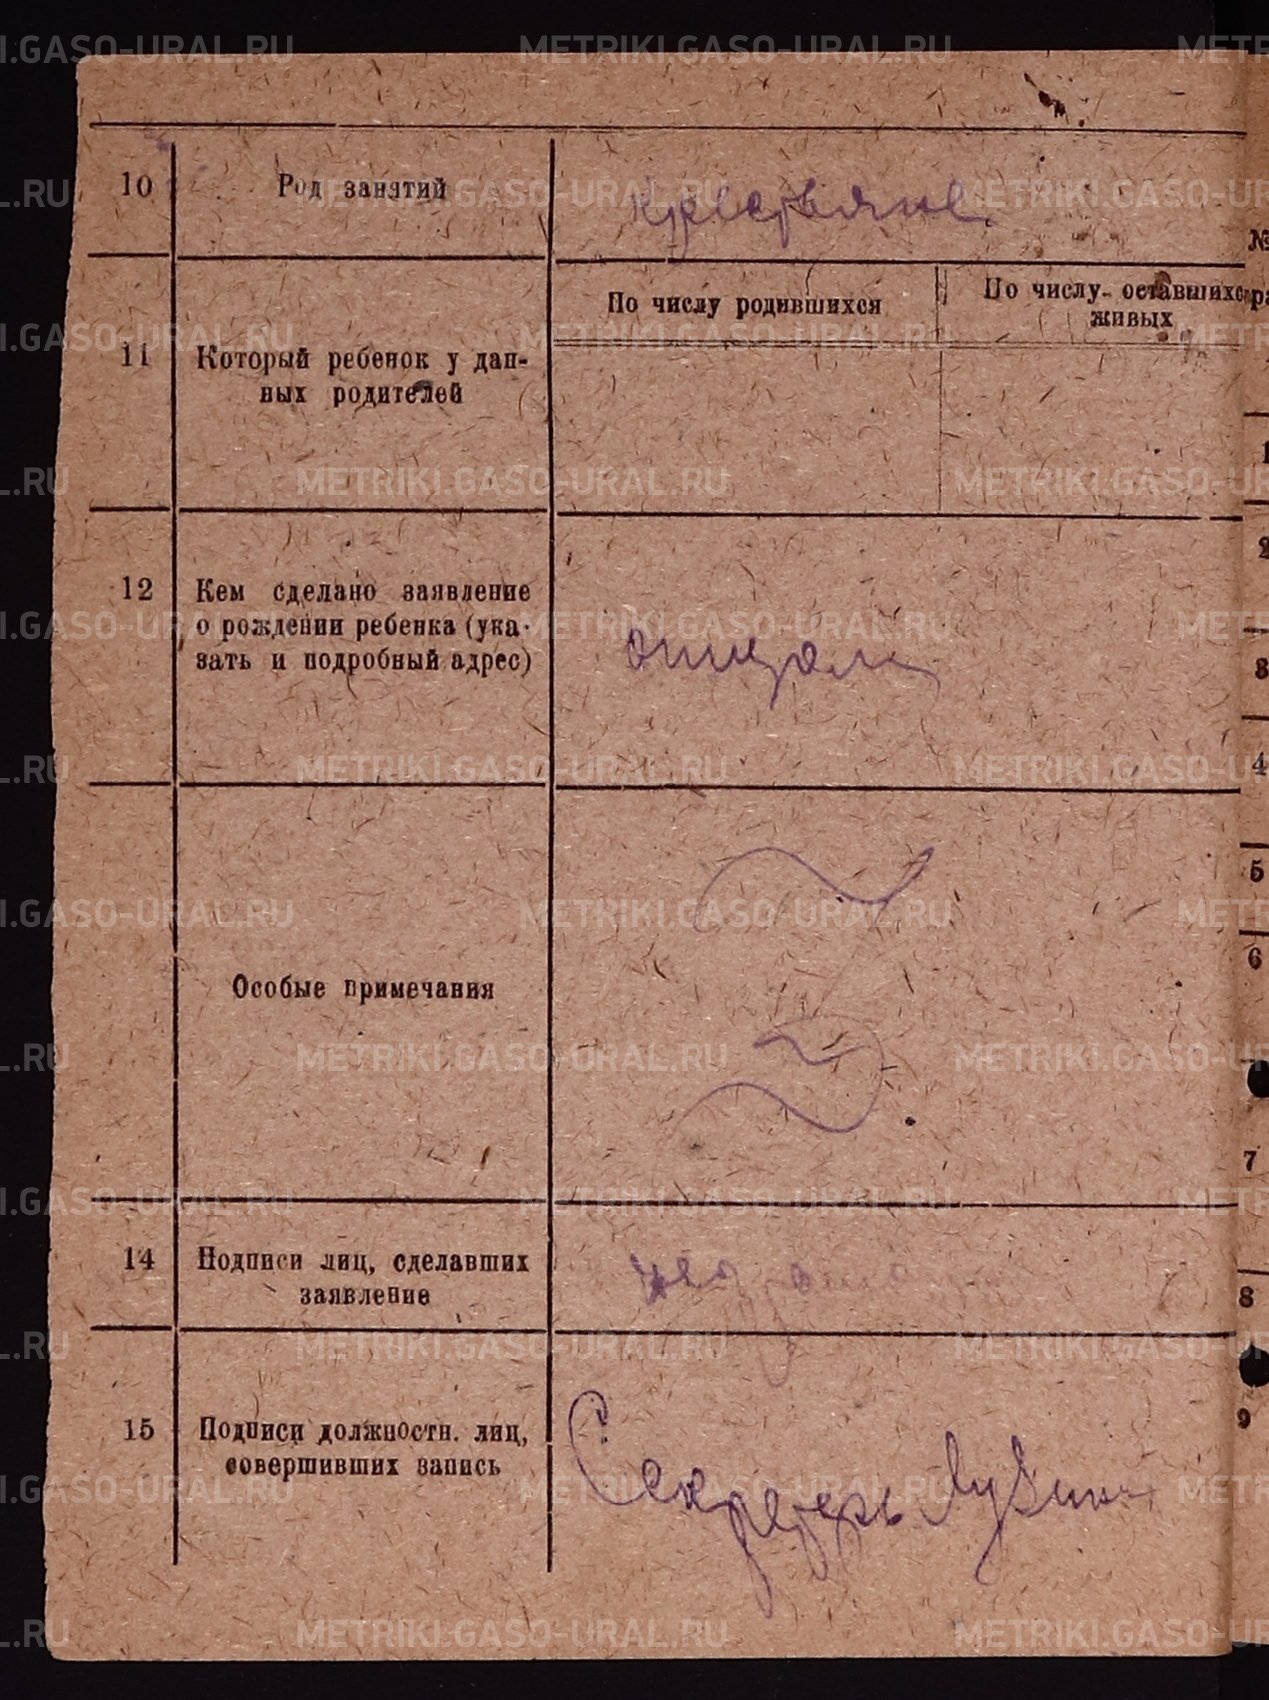 10 Род занятий крестьяне
По числу родившихся По числу оставшихся
живых
11 Который ребенок у дан-
ных родителей
12 Кем сделано заявление
о рождении ребенка (ука-
зать и подробный адрес) отцом
Особые примечания
14 Подписи лиц, сделавших
заявление
15 Подписи должностн. лиц,
совершивших запись
Секретарь
METRIKI.GASO-URAL.RU
№
1
2
3
4
5
6
7
8
9